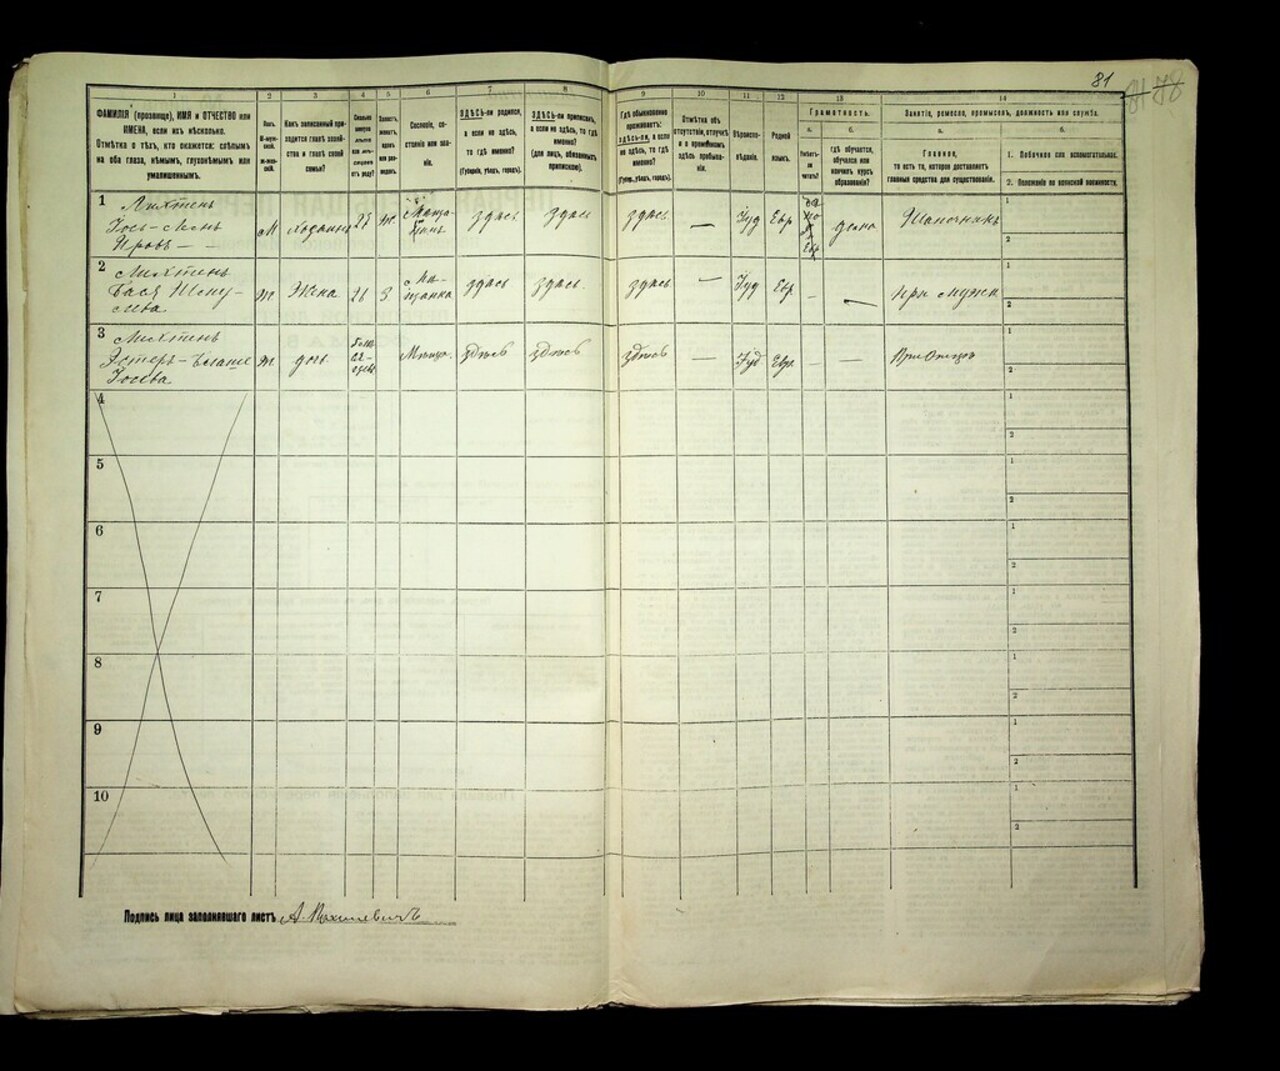 81
78
1
2
3
4
5
6
7
8
9
10
11
12
13
14
ФАМИЛІЯ (прозвище), ИМЯ и ОТЧЕСТВО или
ИМЕНА, если ихъ нѣсколько.
Отмѣтка о тѣхъ, кто окажется: слѣпымъ
на оба глаза, нѣмымъ, глухонѣмымъ или
умалишеннымъ.
Полъ.
М-муж-
ской.
Ж-жен-
скій.
Какъ записанный при-
ходится главѣ хозяй-
ства и главѣ своей
семьи?
Сколько
минуло
лѣтъ
или мѣ-
сяцевъ
отъ роду?
Холостъ,
женатъ,
вдовъ
или раз-
веденъ.
Сословіе, со-
стояніе или зва-
ніе.
ЗДѢСЬ-ли родился,
а если не здѣсь,
то гдѣ именно?
(Губернія, уѣздъ, городъ).
ЗДѢСЬ-ли приписанъ,
а если не здѣсь, то гдѣ
именно?
(для лицъ, обязанныхъ
припискою).
Гдѣ обыкновенно
проживаетъ:
здѣсь-ли, а если
не здѣсь, то гдѣ
именно?
(Губер., уѣздъ, городъ).
Отмѣтка объ
отсутствіи, отлучкѣ
и о временномъ
здѣсь пребыва-
ніи.
Вѣроиспо-
вѣданіе.
Родной
языкъ.
Грамотность.
а.
Умѣетъ-
ли
читать?
б.
гдѣ обучается,
обучался или
кончилъ курсъ
образованія?
Занятіе, ремесло, промыселъ, должность или служба.
а.
Главное,
то есть то, которое доставляетъ
главныя средства для существованія.
б.
1. Побочное или вспомогательное.
2. Положеніе по воинской повинности.
1
Лихтенъ
М
28
ж.
здѣсь
здѣсь
здѣсь
—
Іуд
Евр
дома
Шапочникъ
1
2
2
Лихтенъ
Бася Шему-
лева
ж
Жена
26
З.
здѣсь
здѣсь
здѣсь
—
Іуд
Евр.
—
—
При мужѣ
1
2
3
Лихтенъ
Іосева
ж.
дочь
Мѣща.
здѣсь
здѣсь
здѣсь
—
Іуд
Евр.
—
—
При Отцѣ
1
2
4
1
2
5
1
2
6
1
2
7
1
2
8
1
2
9
1
2
10
1
2
Подпись лица заполнявшаго листъ